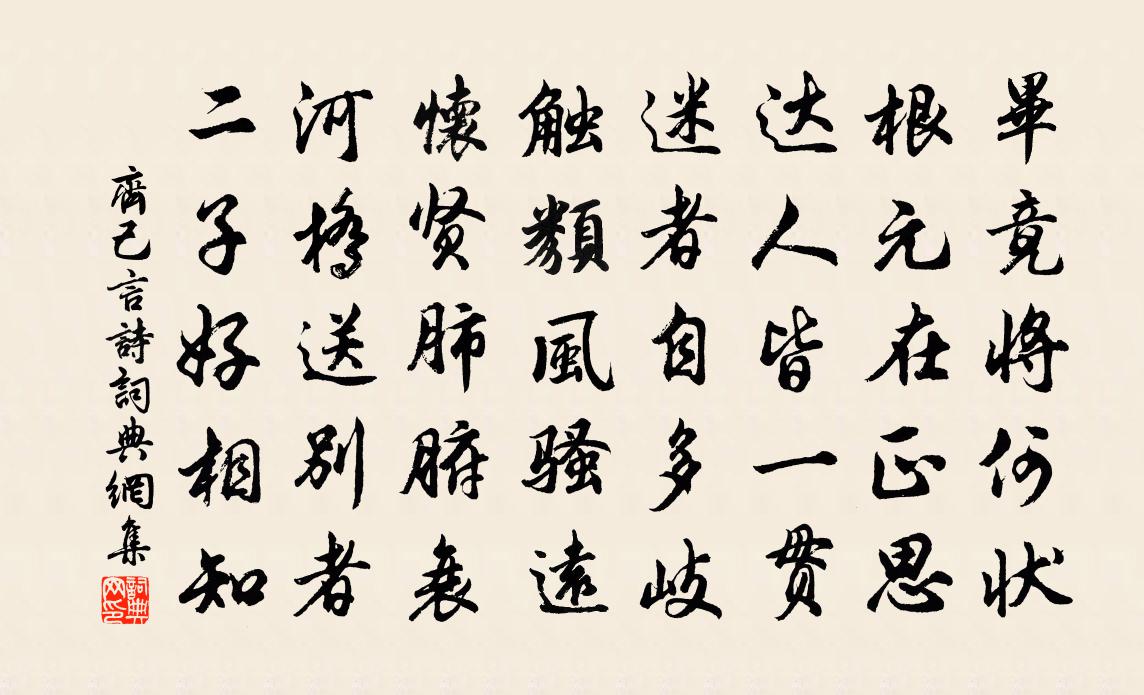 畢竟將何狀
根元在正思
达人皆一贯
迷者自多岐
触類風骚遠
懷贤肺腑衰
河橋送别者
二子好相知
齊己言詩詞典網集
詞典网印